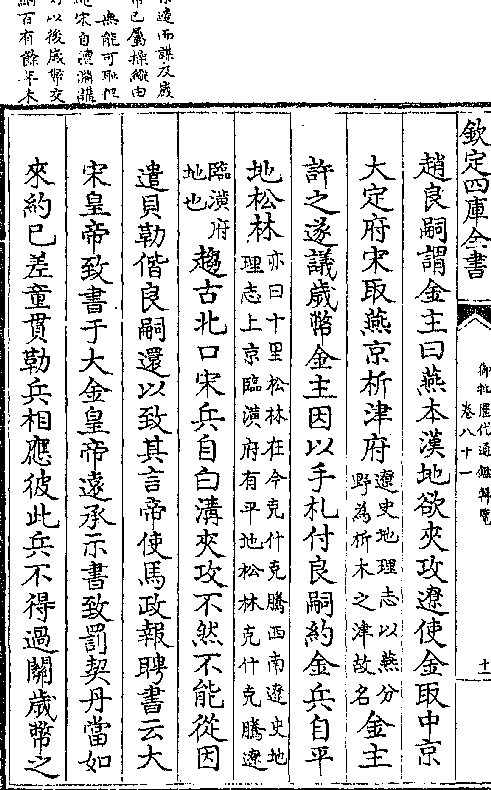 欽定四庫全書
御批歷代通鑑輯覽
卷八十一
十一
趙良嗣謂金主曰燕本漢地欲夾攻遼使金取中京
大定府宋取燕京析津府遼史地理志以燕分野為析木之津故名金主
許之遂議歲幣金主因以手札付良嗣約金兵自平
地松林亦曰十里松林在今克什克騰西南遼史地理志上京臨潢府有平地松林克什克騰遼
臨潢府地也趨古北口宋兵自白溝夾攻不然不能從因
遣貝勒偕良嗣還以致其言帝使馬政報聘書云大
宋皇帝致書于大金皇帝遠承示書致罰契丹當如
來約已差童貫勒兵相應彼此兵不得過關歲幣之
遠而謀及歲
幣已屬操縱由
無能可恥但
宋自澶淵
以後歲幣交
百有餘年木